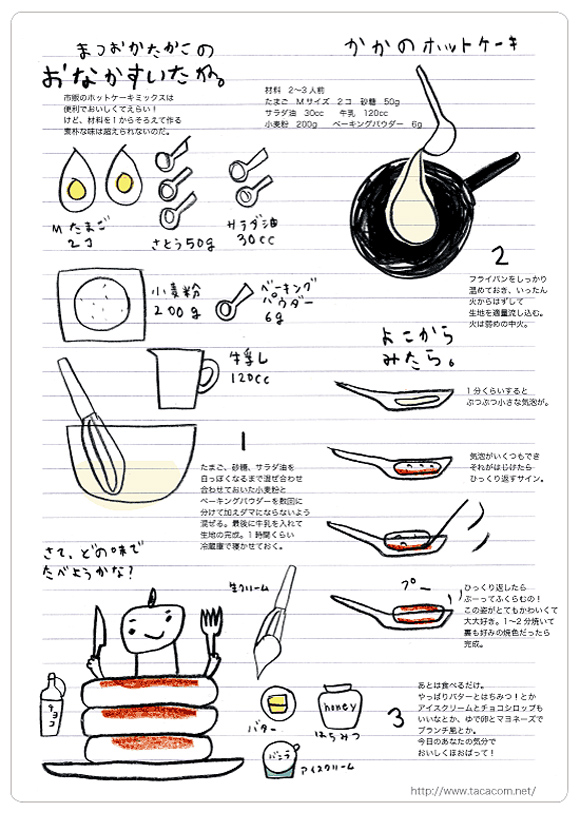 まつおかたかこの
おなかすいたね。
かかのホットケーキ
市販のホットケーキミックスは
便利でおいしくてえらい！
けど、材料を1からそろえて作る
素朴な味は超えられないのだ。
材料　2〜3人前
たまご　Mサイズ　2コ　砂糖　50g
サラダ油　30cc　牛乳　120cc
小麦粉　200g　ベーキングパウダー　6g
M たまご
2コ
さとう50g
サラダ油
30cc
小麦粉
200g
ベーキング
パウダー
6g
牛乳し
120cc
1
たまご、砂糖、サラダ油を
白っぽくなるまで混ぜ合わせ
合わせておいた小麦粉と
ベーキングパウダーを数回に
分けて加えダマにならないよう
混ぜる。最後に牛乳を入れて
生地の完成。1時間くらい
冷蔵庫で寝かせておく。
2
フライパンをしっかり
温めておき、いったん
火からはずして
生地を適量流し込む。
火は弱めの中火。
よこから
みたら。
1分くらいすると
ぷつぷつ小さな気泡が。
気泡がいくつもでき
それがはじけたら
ひっくり返すサイン。
プー
ひっくり返したら
ぷーってふくらむの！
この姿がとてもかわいくて
大大好き。1〜2分焼いて
裏も好みの焼色だったら
完成。
さて、どの味で
たべようかな？
生クリーム
チョコ
バター
honey
はちみつ
バニラ
アイスクリーム
3
あとは食べるだけ。
やっぱりバターとはちみつ！とか
アイスクリームとチョコシロップも
いいなとか、ゆで卵とマヨネーズで
ブランチ風とか。
今日のあなたの気分で
おいしくほおばって！
http://www.tacacom.net/